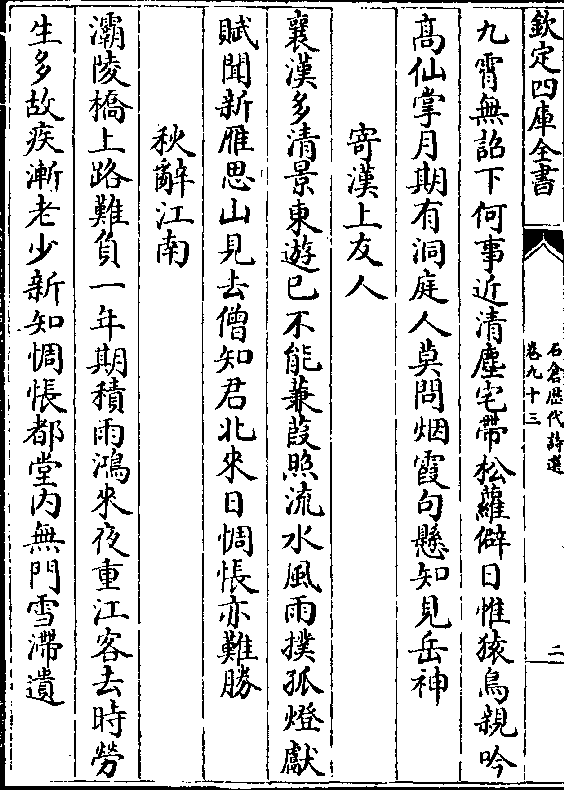 欽定四庫全書
石倉歴代詩選
卷九十三
二
九霄無詔下何事近清塵宅帶松蘿僻日惟猿鳥親吟
髙仙掌月期有洞庭人莫問烟霞句懸知見岳神
寄漢上友人
襄漢多清景東遊已不能蒹葭照流水風雨撲孤燈獻
賦聞新雁思山見去僧知君北來日惆悵亦難勝
秋辭江南
灞陵橋上路難負一年期積雨鴻來夜重江客去時勞
生多故疾漸老少新知惆悵都堂内無門雪滯遺